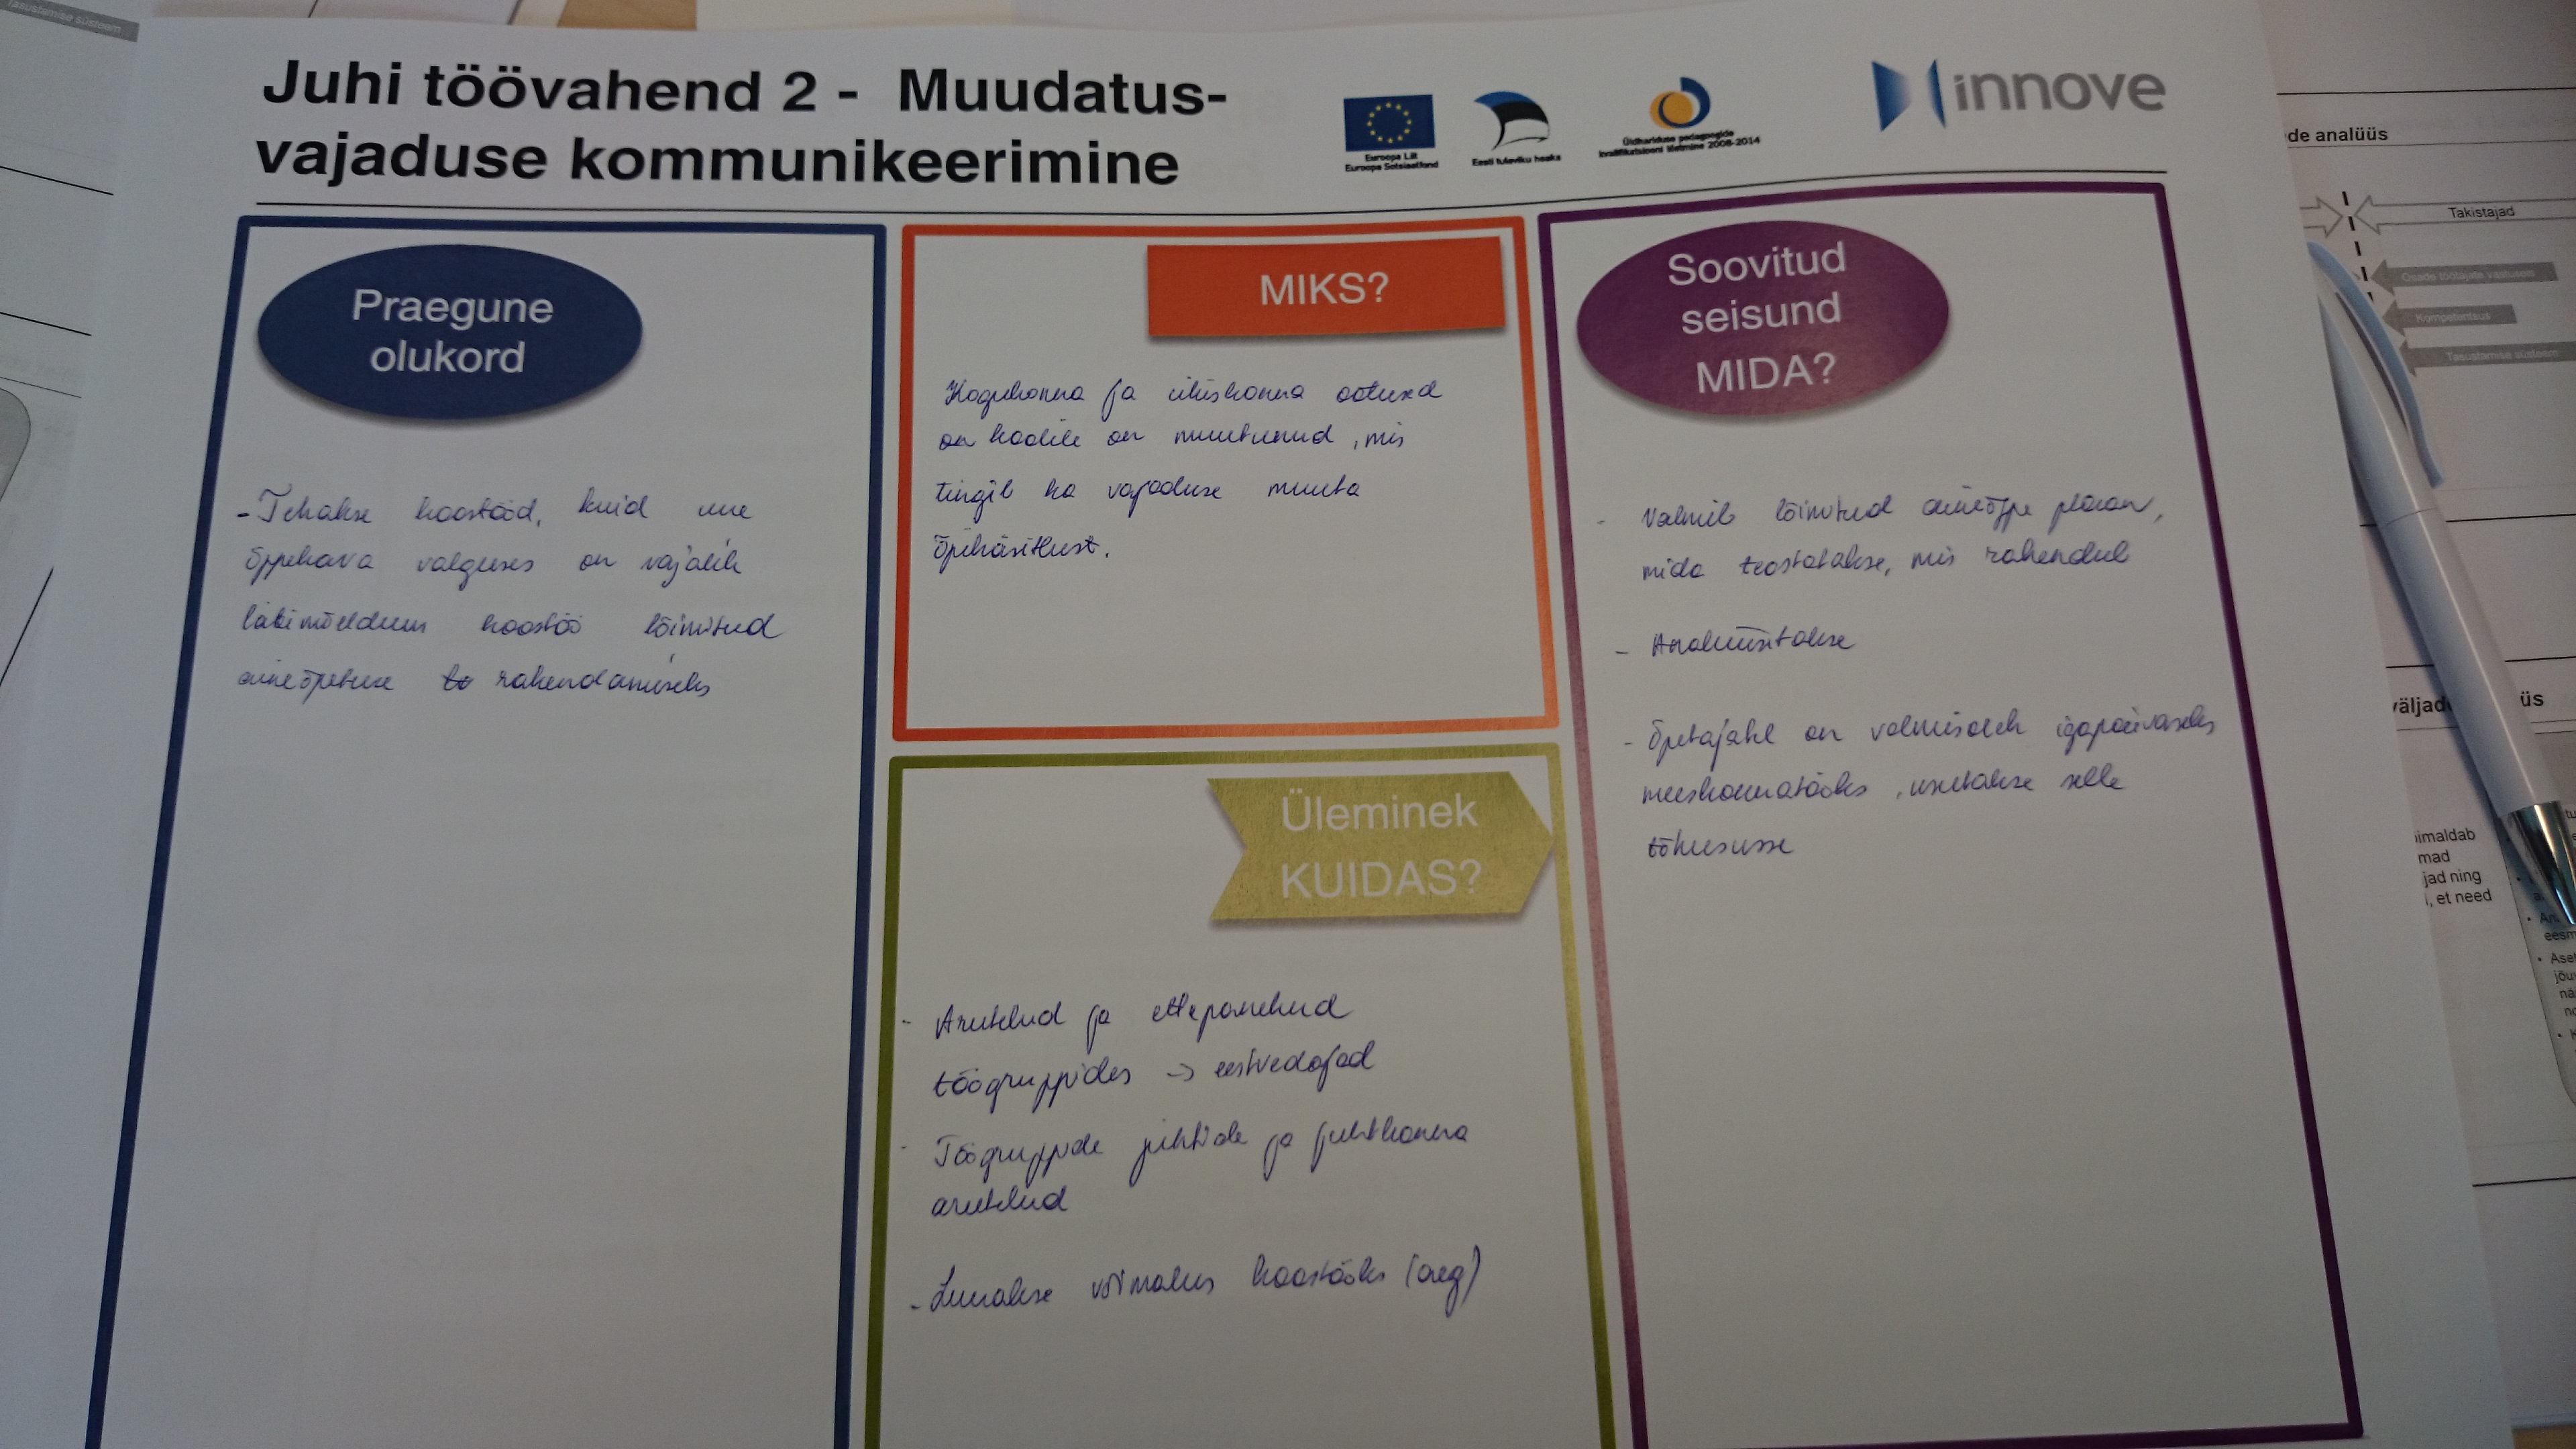 Juhi töövahend 2 - Muudatus-
vajaduse kommunikeerimine
Euroopa Liit
Euroopa Sotsiaalfond
Eesti tuleviku heaks
Üldhariduse pedagoogide
kvalifikatsiooni tõstmine 2008-2014
innove
Praegune
olukord
- Tehakse koostööd, kuid uue
õppekava valguses on vajalik
läbimõeldum koostöö lõimitud
aineõpetuse to rakendamiseks
MIKS?
Kogukonna ja ühiskonna ootused
on koolile on muutunud, mis
tingib ka vajaduse muuta
õpikäsitlust.
Üleminek
KUIDAS?
- Arutelud ja ettepanekud
töögruppides → eestvedajad
- Töögruppide juhtide ja juhtkonna
arutelud
- Luuakse võimalus koostööks (aeg)
Soovitud
seisund
MIDA?
- Valmib lõimitud aineõppe plaan,
mida teostatakse, mis rakendub
- Analüüsitakse
- Õpetajatel on valmisolek igapäevaseks
meeskonnatööks, usutakse selle
tõhususse
Tasustamise süsteem
de analüüs
Takistajad
Osade töötajate vastuseis
Kompetentsus
Tasustamise süsteem
väljad
üs
imaldab
mad
jad ning
, et need